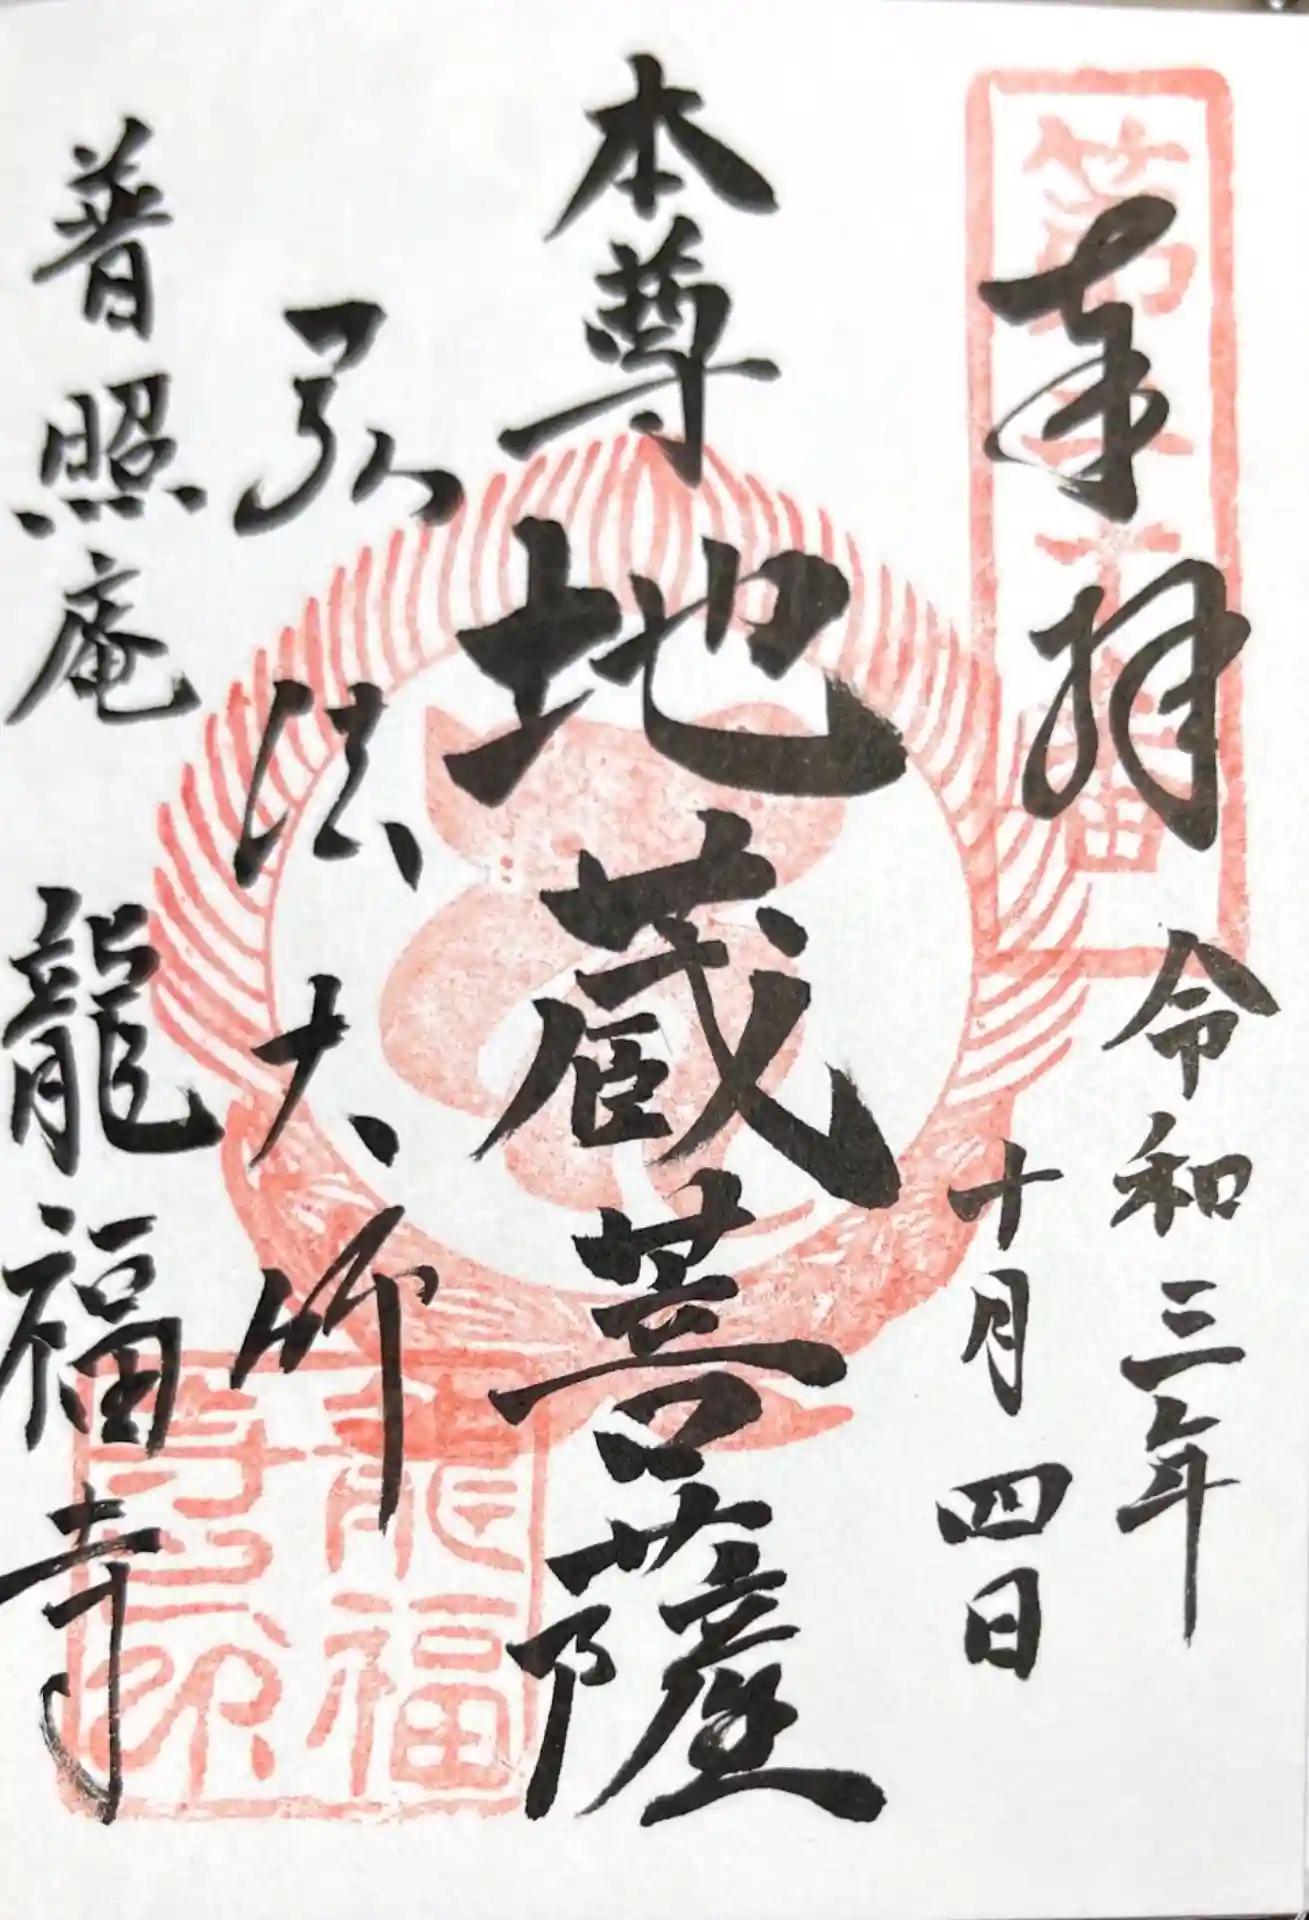 奉拝
令和三年
十月四日
本尊 地蔵菩薩
弘法大師
普照庵 龍福寺
龍福
寺印